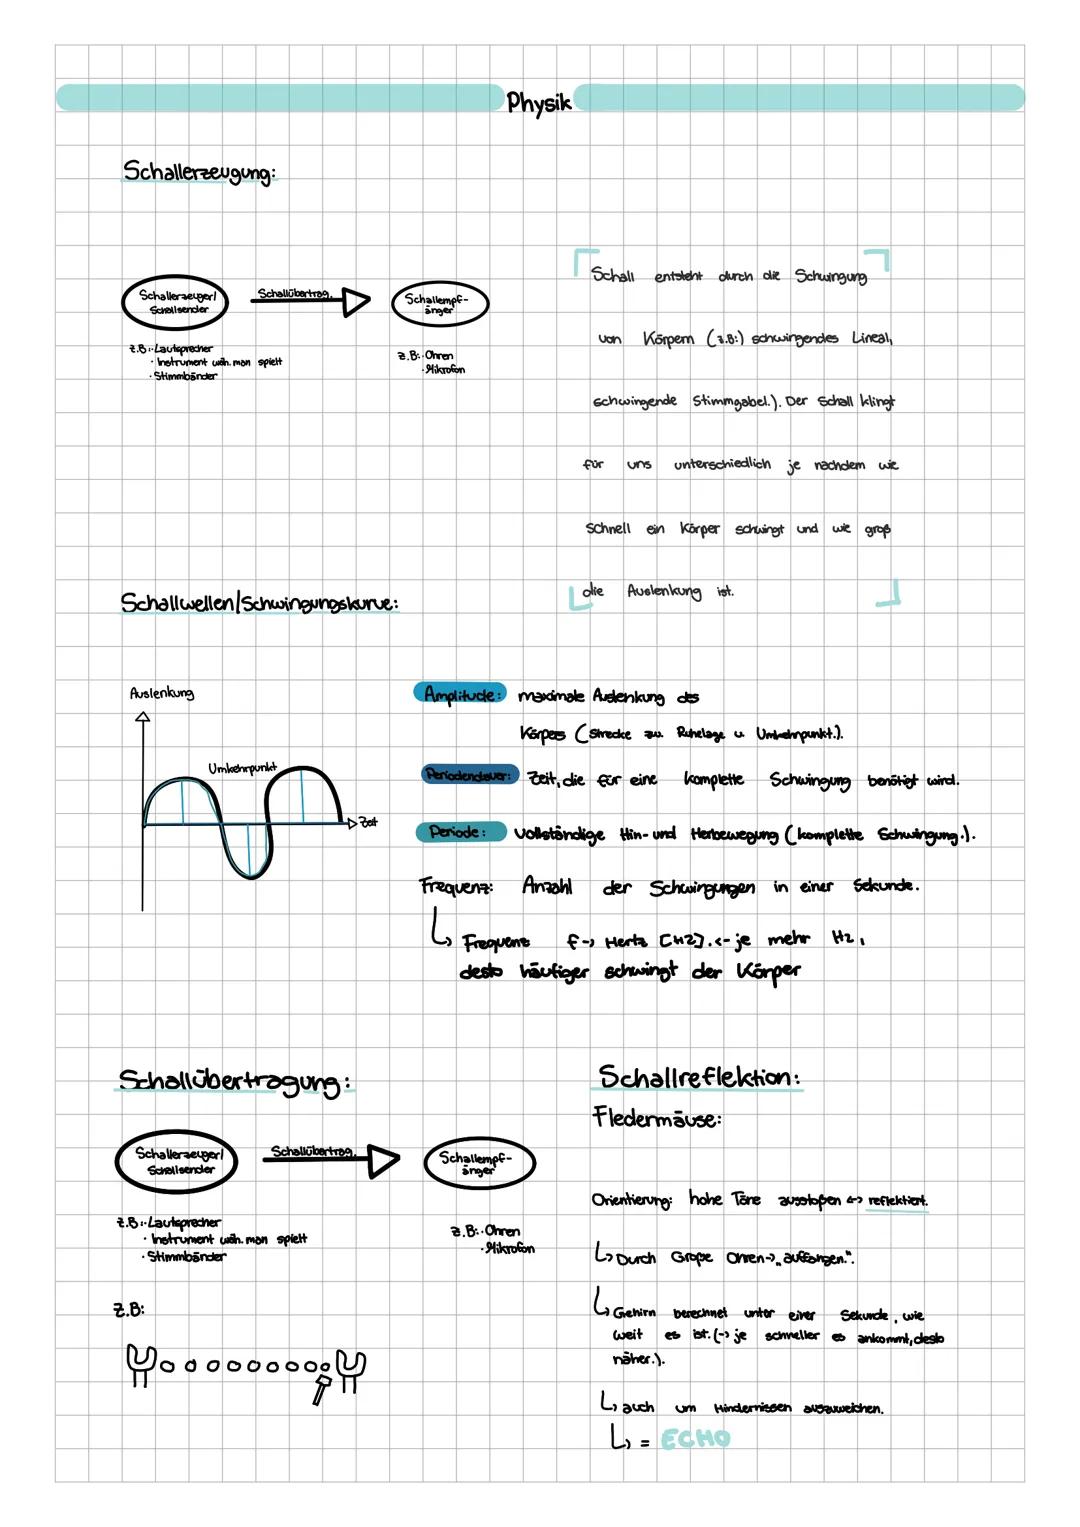 Physik
Schallerzeugung:
Schallerzeuger/
Schallsender
Schallübertrag.
Schallempf-
änger
z.B.:·Lautsprecher
· Instrument wäh. man spielt
· Stimmbänder
z.B.:·Ohren
·Mikrofon
Schall entsteht durch die Schwingung
von Körpern (z.B:) schwingendes Lineal,
schwingende Stimmgabel.). Der Schall klingt
für uns unterschiedlich je nachdem wie
Schnell ein Körper schwingt und wie groß
die Auslenkung ist.
Schallwellen/Schwingungskurve:
Auslenkung
Umkehrpunkt
Zeit
Amplitude: maximale Auslenkung des
Körpers (Strecke zw. Ruhelage u Umkehrpunkt.).
Periodendauer: Zeit, die für eine komplette Schwingung benötigt wird.
Periode: Vollständige Hin- und Herbewegung (komplette Schwingung.).
Frequenz: Anzahl der Schwingungen in einer Sekunde.
↳ Frequenz f-> Hertz [HZ].<- je mehr Hz,
desto häufiger schwingt der Körper
Schallübertragung:
Schallerzeuger/
Schallsender
Schallübertrag.
Schallempf-
änger
z.B.:·Lautsprecher
· Instrument wäh. man spielt
· Stimmbänder
z.B.:·Ohren
·Mikrofon
Z.B:
Schallreflektion:
Fledermäuse:
Orientierung: hohe Töne ausstoßen <-> reflektiert.
↳ Durch Große Ohren-> „auffangen.“
↳ Gehirn berechnet unter einer Sekunde, wie
weit es ist. (-> je schneller es ankommt, desto
näher.).
↳ auch um Hindernissen auszuweichen.
↳ = ECHO